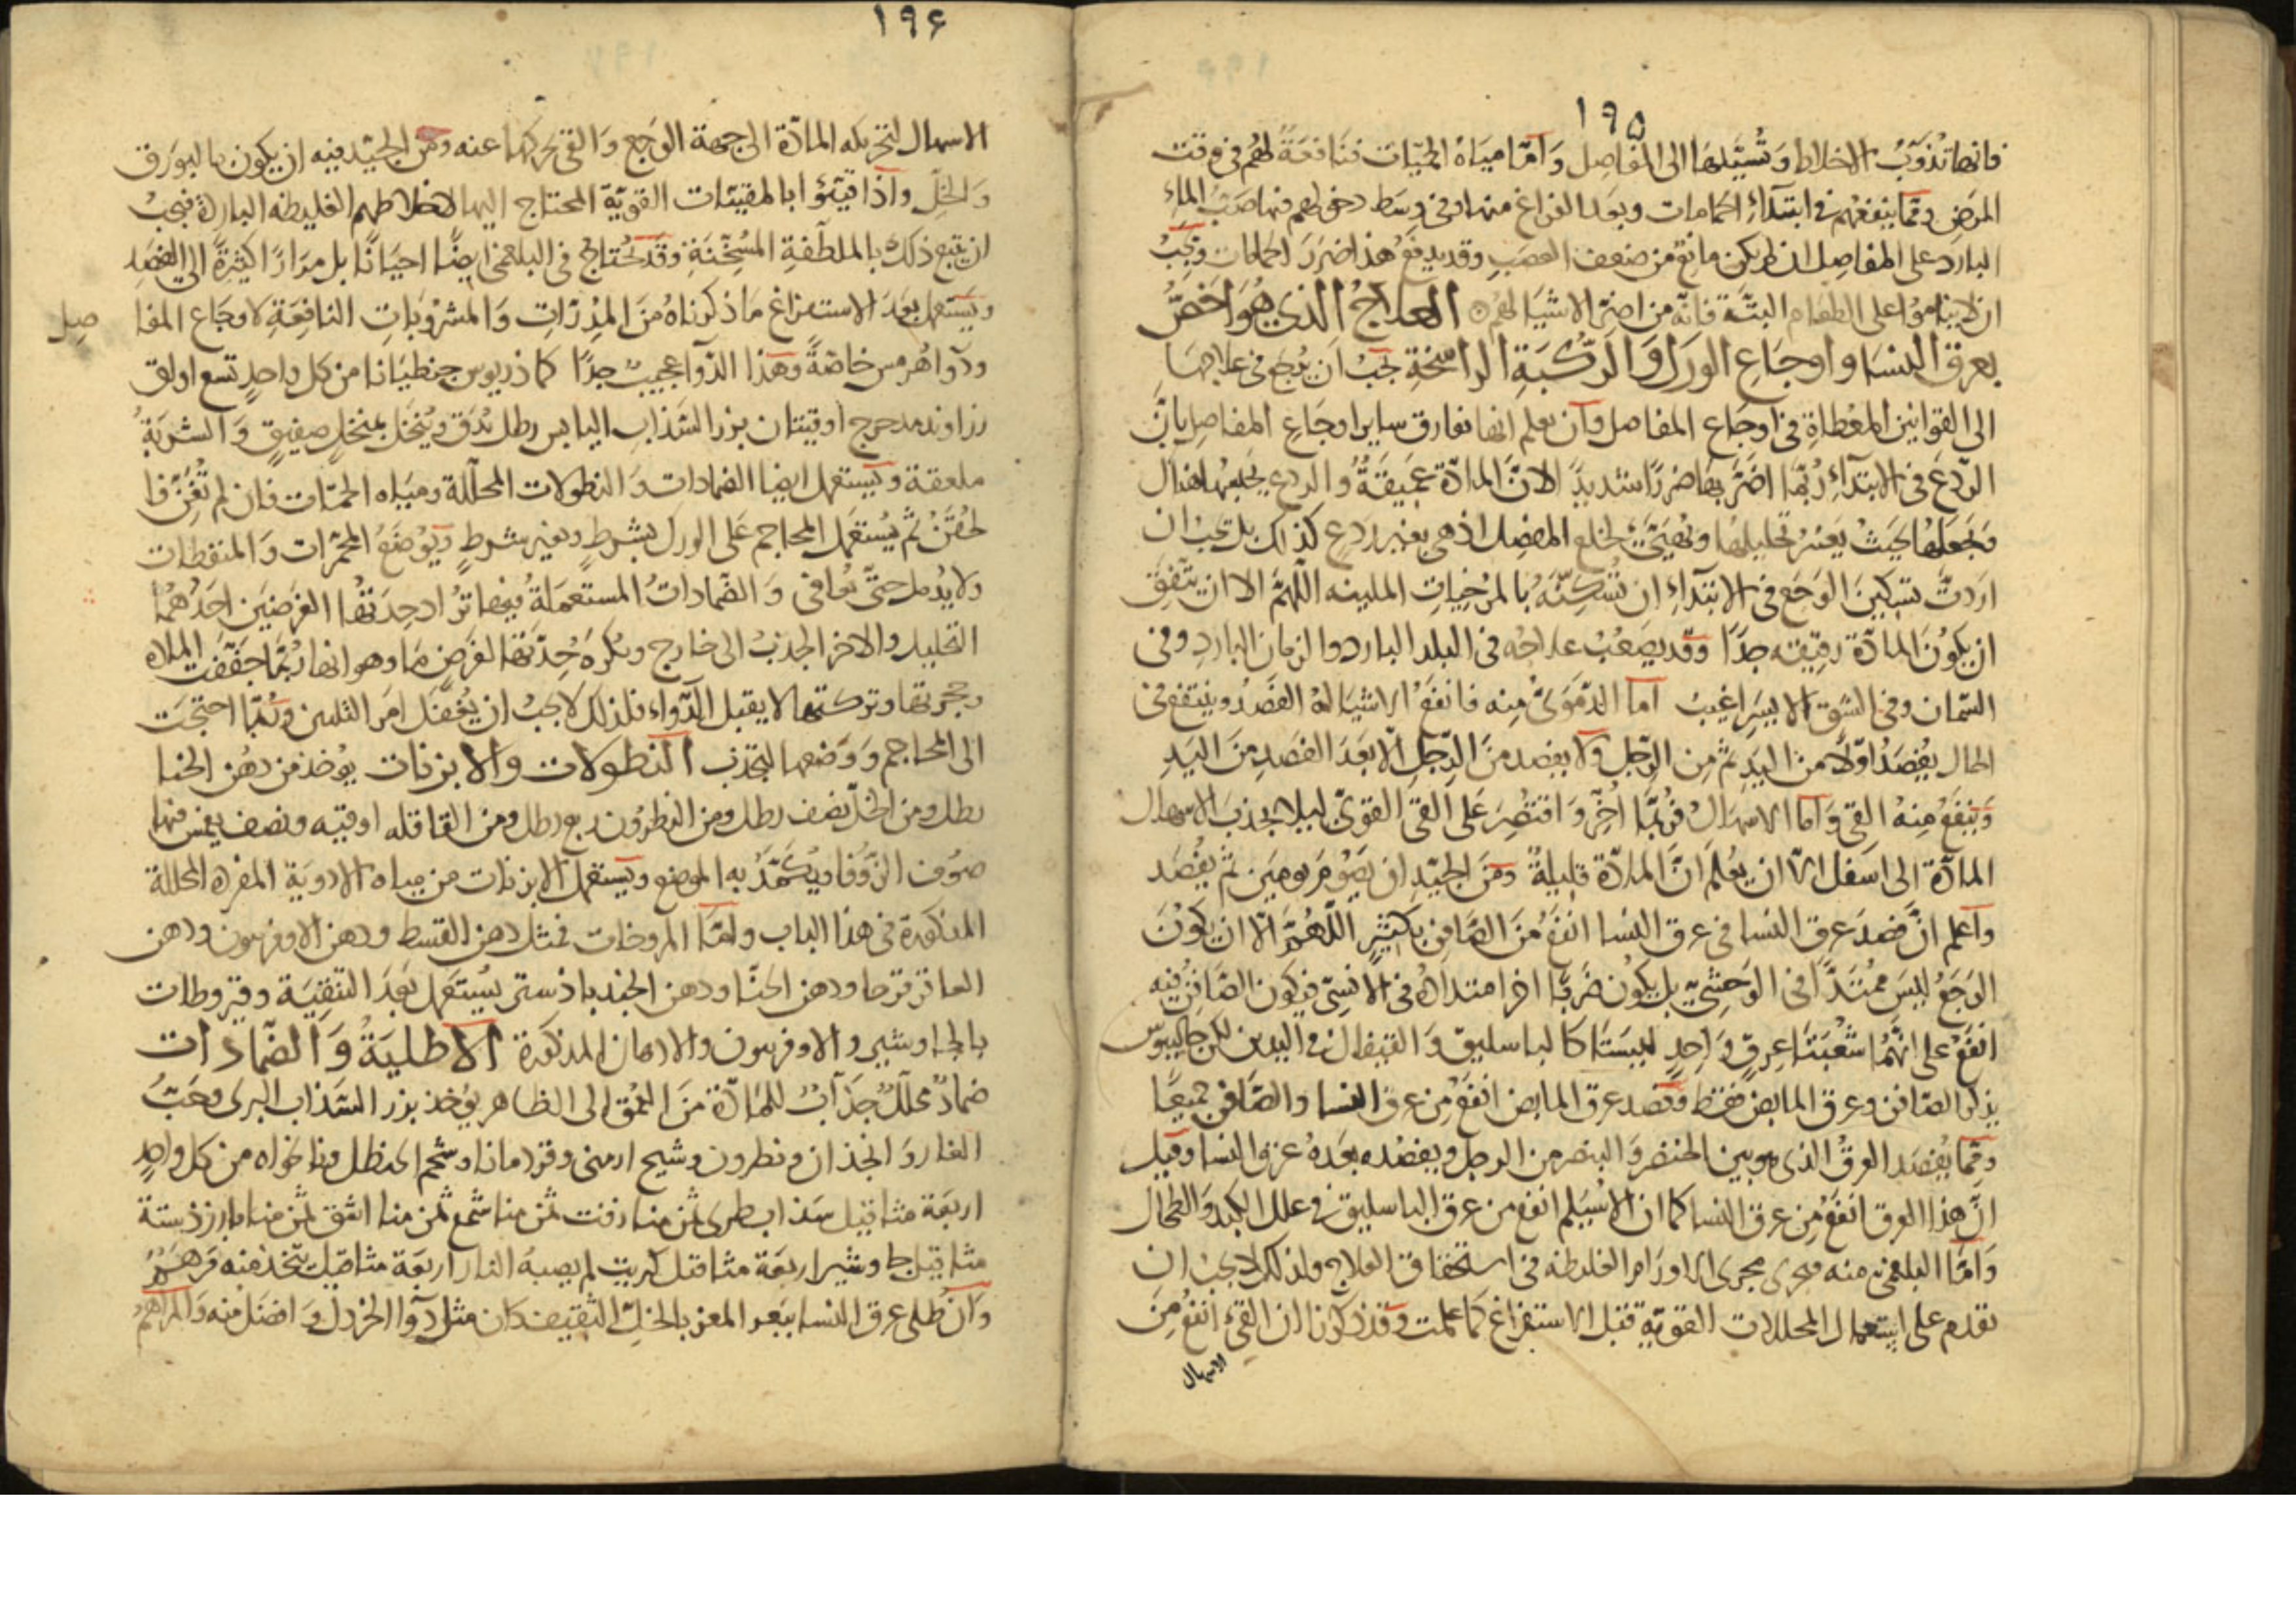 ١٩٥
فانها تذوّب الاخلاط وتسيّلها الى المفاصل وامّا مياه الحمّيات فنافعة لهم فى وقت
المرض وممّا ينفعهم فى ابتداء الحمامات وبعد الفراغ منها وفى وسط دخولهم فيها صبّ الماء
البارد على المفاصل ان لم يكن مانع من ضعف العصب وقد يدفع هذا ضرر الحمامات ويجب
ان لا يناموا على الطعام البتّة فانّه من اضرّ الاشياء لهم العلاج الذى هو اخصّ
بعرق النسا واوجاع الورك والركبة الراسخة يجب ان يرجع فى علاجها
الى القوانين المعطاة فى اوجاع المفاصل وان يعلم انها تفارق ساير اوجاع المفاصل بانّ
الردع فى الابتداء ربّما اضرّ بها ضررًا شديدًا لانّ المادّة عميقة والردع يحبسها هناك
ويجعلها بحيث يعسر تحليلها وتهيّئ لخلع المفصل اذ هى بغير ردع كذلك بل يجب ان
اردت تسكين الوجع فى الابتداء ان تسكّنه بالمرخيات الملينه اللهمّ الا ان يتّفق
ان يكون المادّة رقيقه جدًا وقد يصعب علاجه فى البلد البارد والزمان البارد وفى
السمان وفى الشق الايسر اغيب اما الدموىّ منه فانفع الاشياء له الفصد وينتفع فى
الحال يفصد اوّلا من اليد ثم من الرجل ولا يفصد من الرجل الّا بعد الفصد من اليد
وينفع منه القى واما الاسهال فربّما اخّر واقتصر على القى القوىّ ليلا يجذب الاسهال
المادّة الى اسفل الّا ان يعلم انّ المادّة قليلة ومن الجيّد ان يصوم يومين ثم يفصد
واعلم انّ فصد عرق النسا فى عرق النسا انفع من الصافن بكثير اللهمّ الّا ان يكون
الوجع ليس ممتدًّا فى الوحشىّ بل يكون ضربًا اخر امتداده فى الانسىّ فيكون الصافن فيه
انفع على انّهما شعبتا عرق واحد ليستا كالباسليق والقيفال فى اليدين لكن جالينوس
يذكر الصافن وعرق المابض فقط وفصد عرق المابض انفع من عرق النسا والصافن جميعًا
وممّا يفصد العرق الذى هو بين الخنصر والبنصر من الرجل ويفصد بعده عرق النسا وقيل
انّ هذا العرق انفع من عرق النسا كما ان الاسيلم انفع من عرق الباسليق فى علل الكبد والطحال
وامّا البلغمى منه فيجرى مجرى الاورام الغليظه فى استحقاق العلاج ولذلك لا يجب ان
تقدم على استعمال المحللات القويّة قبل الاستفراغ كما علمت وقد ذكرنا ان القىء انفع من
الاسهال
١٩٦
الاسهال لتحريكه المادّة الى جهة الوجع والقى يحركها عنه ومن الجيّد فيه ان يكون بالبورق
والخلّ واذا قيّئوا بالمقيئات القويّة المحتاج اليها لاخلاطهم الغليظه البارده فيجب
ان يتبع ذلك بالملطّفة المسخّنة وقد يحتاج فى البلغمى ايضًا احيانًا بل مرارًا كثيرة الى الفصد
ويستعمل بعد الاستفراغ ما ذكرناه من المدرّات والمشروبات النافعة لاوجاع المفا صل
ودواء هرمس خاصّة وهذا الدواء عجيب جدًا كماذريوس جنطيانا من كل واحد تسع اواق
زراوند مدحرج اوقيتان بزر السذاب اليابس رطل يدق وينخل بمنخل صفيق والشربة
ملعقة ويستعمل ايضا الضمادات والنطولات المحلّلة ومياه الحمّات فان لم تغن فا
لحقن ثم يستعمل المحاجم على الورك بشرط وبغير شرط ويوضع المحمّرات والمنفطات
ولا يدمل حتّى يعافى والضمادات المستعملة فيها تراد حدتها لغرضين احدهما
التحليل والاخر الجذب الى خارج ويكره حدّتها لغرض ما وهو انها ربّما جفّفت المادّه
وحجرتها وتركتها لا يقبل الدّواء فلذلك لا يجب ان يغفل امر التليين وربّما احتجت
الى المحاجم ووضعها لتجذب النطولات والابزنات يوخذ من دهن الحنا
رطل ومن الخلّ نصف رطل ومن النطرون ربع رطل ومن القاقله اوقيه ونصف يغمس فيها
صوف الزّوفا ويكمّد به الموضع ويستعمل الابزنات من مياه الادوية المفرده المحللة
المذكورة فى هذا الباب وامّا المروخات فمثل دهن القسط ودهن الاوفربيون ودهن
العاقرقرحا ودهن الحنّا ودهن الجندبادستر يستعمل بعد التنقية وقيروطات
بالجاوشير والاوفربيون والادهان المذكورة الاطلية والضمادات
ضماد محلّل جذّاب للمادّة من العمق الى الظاهر يوخذ بزر السذاب البرى وحبّ
الغار وانجذان ونطرون وشيح ارمنى وقردمانا وشحم الحنظل ونانخواه من كل واحد
اربعة مثاقيل سذاب طرى ثمن منا زفت ثمن منا شمع ثمن منا اشق ثمن منا بارزذ ستة
مثاقيل جاوشير اربعة مثاقيل كبريت لم يصبه النار اربعة مثاقيل يتّخذ منه مرهم
وان طلى عرق النسا ببعر المعز بالخلّ الثقيف كان مثل دواء الخردل وافضل منه والمراهم